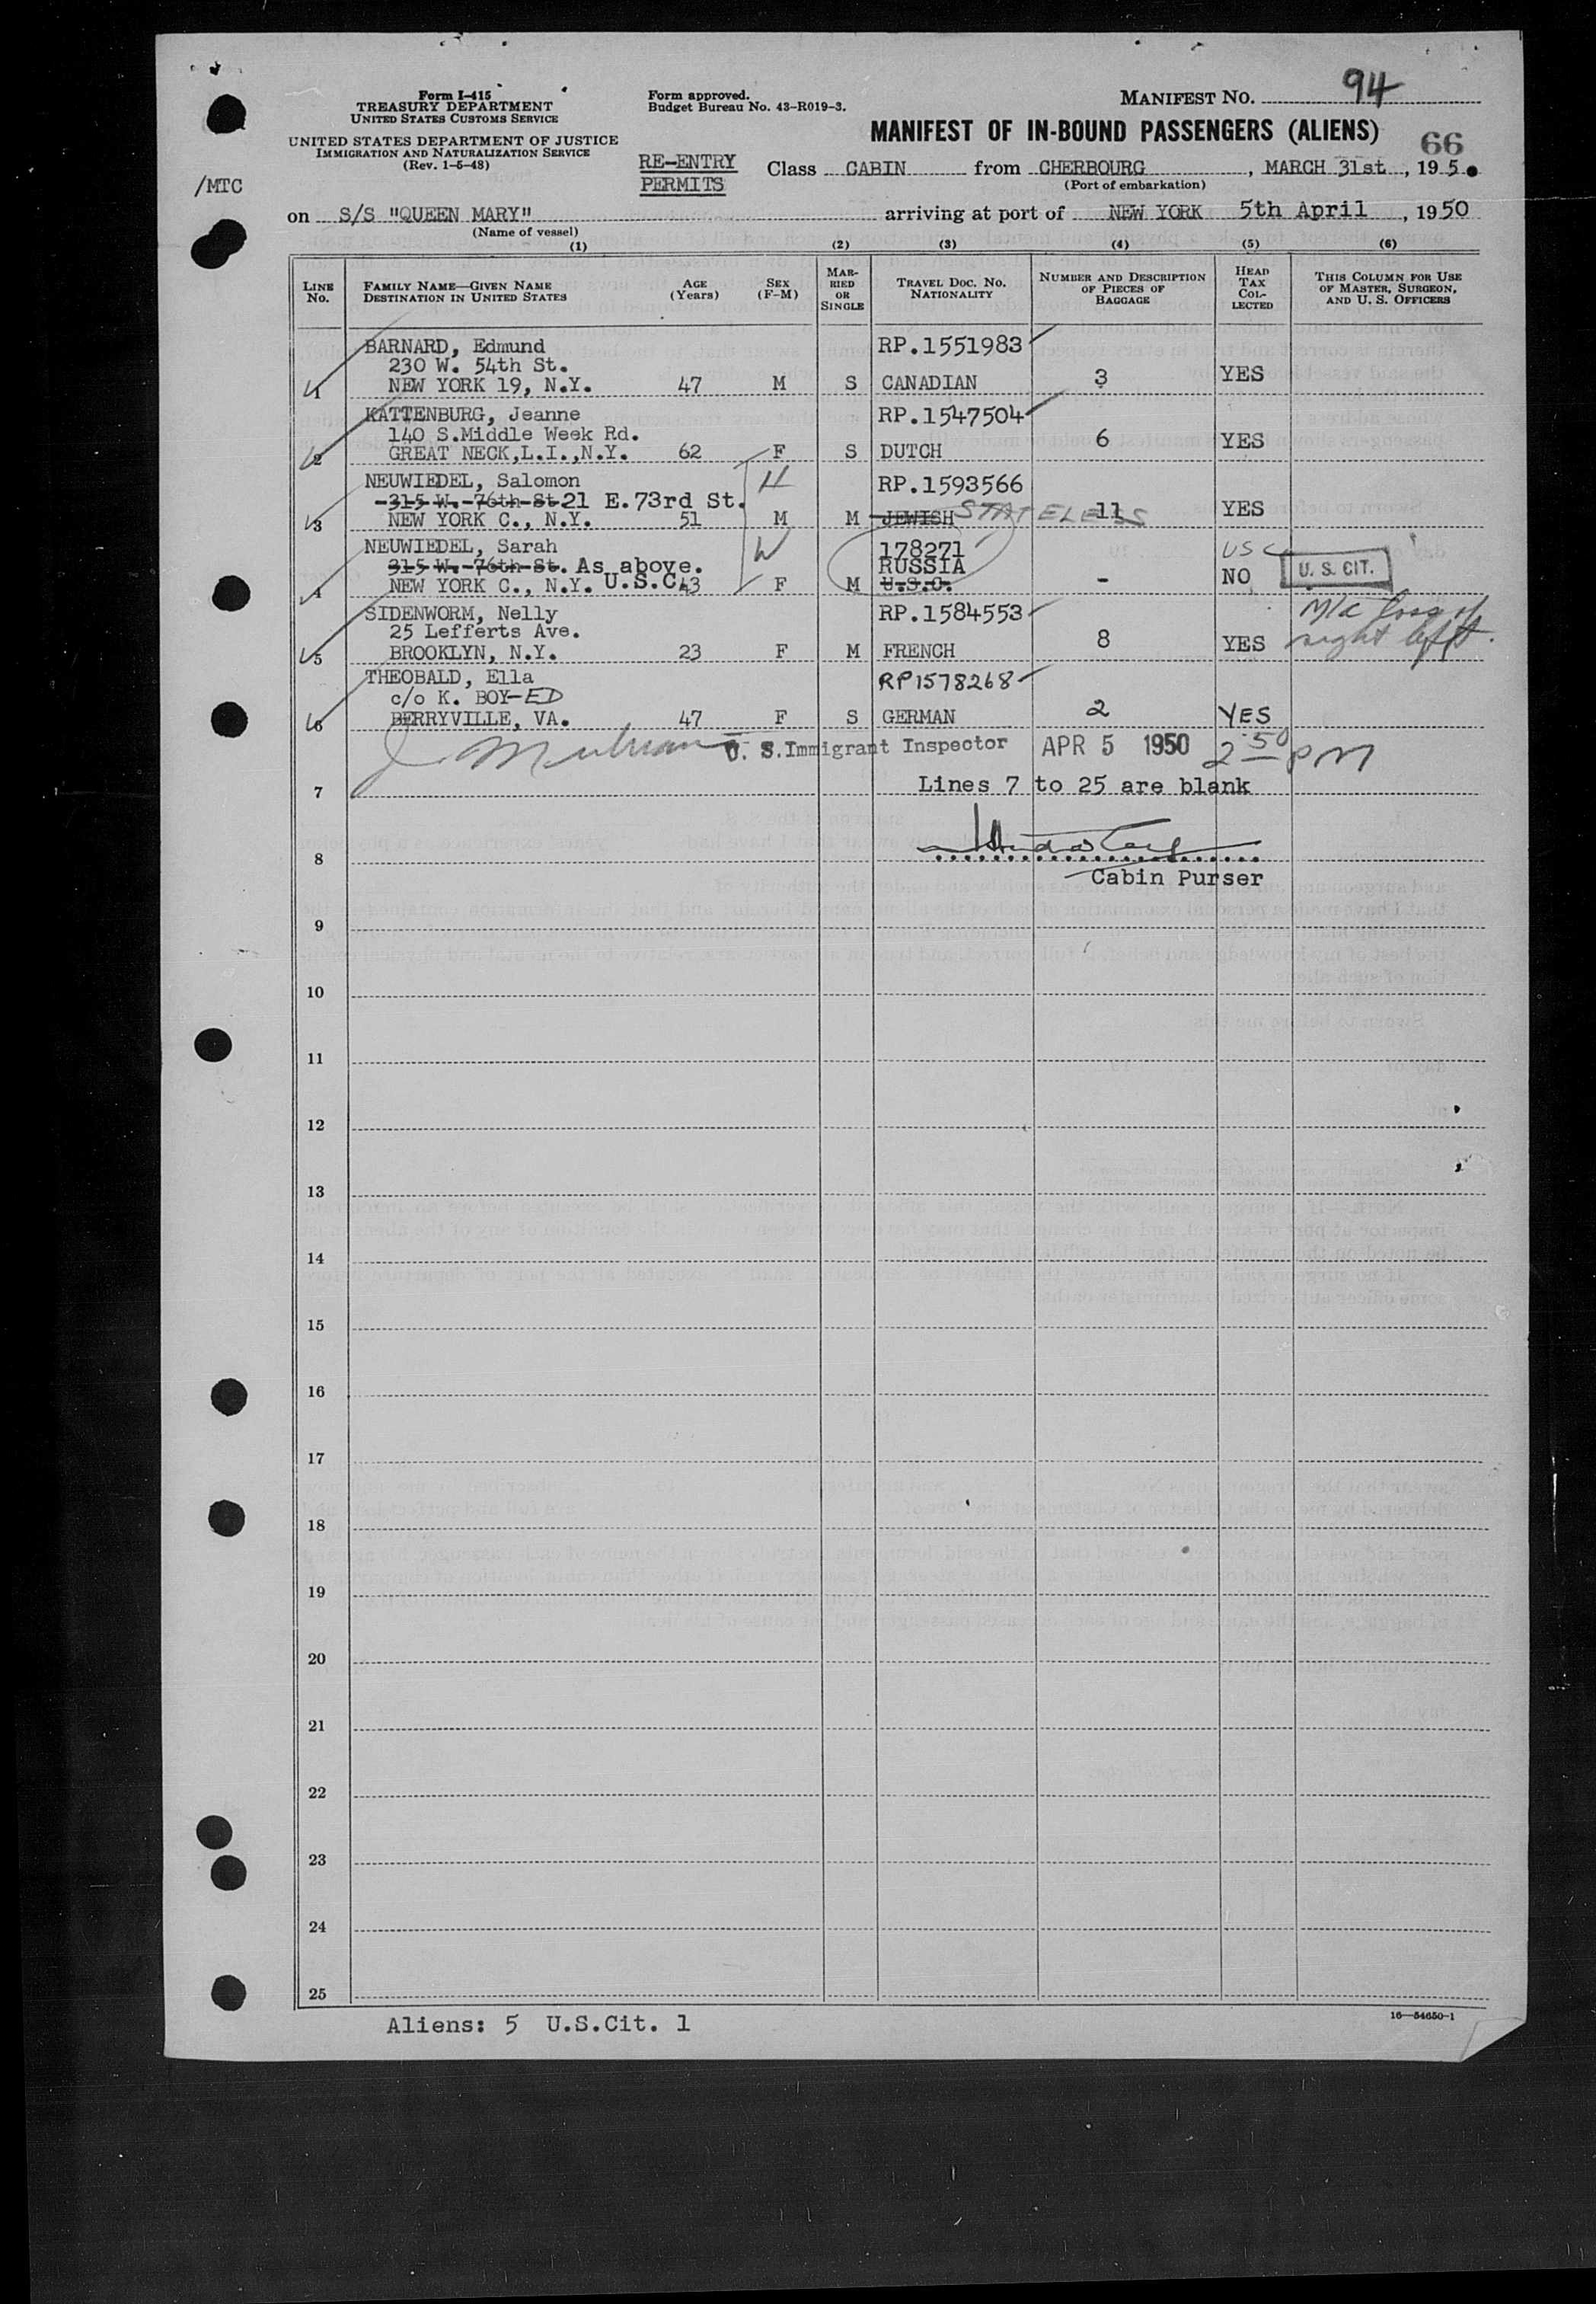 Form I-415
TREASURY DEPARTMENT
UNITED STATES CUSTOMS SERVICE
UNITED STATES DEPARTMENT OF JUSTICE
IMMIGRATION AND NATURALIZATION SERVICE
(Rev. 1-5-48)
/MTC
Form approved.
Budget Bureau No. 43-R019-3.
MANIFEST NO. 94
MANIFEST OF IN-BOUND PASSENGERS (ALIENS)
66
RE-ENTRY PERMITS
Class CABIN from CHERBOURG, MARCH 31st, 195
(Port of embarkation)
on S/S "QUEEN MARY" arriving at port of NEW YORK 5th April, 1950
(Name of vessel)
(1) (2) (3) (4) (5) (6)
LINE No.
FAMILY NAME—GIVEN NAME
DESTINATION IN UNITED STATES
AGE (Years)
SEX (F-M)
MARRIED OR SINGLE
TRAVEL DOC. NO. NATIONALITY
NUMBER AND DESCRIPTION OF PIECES OF BAGGAGE
HEAD TAX COLLECTED
THIS COLUMN FOR USE OF MASTER, SURGEON, AND U. S. OFFICERS
BARNARD, Edmund RP.1551983
230 W. 54th St.
1 NEW YORK 19, N.Y. 47 M S CANADIAN 3 YES
KATTENBURG, Jeanne RP.1547504
140 S.Middle Week Rd.
2 GREAT NECK,L.I.,N.Y. 62 F S DUTCH 6 YES
NEUWIEDEL, Salomon H RP.1593566
315 W. 76th St 21 E.73rd St.
3 NEW YORK C., N.Y. 51 M M JEWISH STATELESS 11 YES
NEUWIEDEL, Sarah W 178271 USC
315 W. 76th St. As above. RUSSIA
4 NEW YORK C., N.Y. U.S.C. 43 F M U.S.C. - NO U. S. CIT.
SIDENWORM, Nelly RP.1584553
25 Lefferts Ave.
5 BROOKLYN, N.Y. 23 F M FRENCH 8 YES
THEOBALD, Ella RP1578268
c/o K. BOY-ED
6 BERRYVILLE, VA. 47 F S GERMAN 2 YES
U. S. Immigrant Inspector APR 5 1950 2 50 PM
7 Lines 7 to 25 are blank
8
Cabin Purser
9
10
11
12
13
14
15
16
17
18
19
20
21
22
23
24
25
Aliens: 5 U.S.Cit. 1
16—54650-1